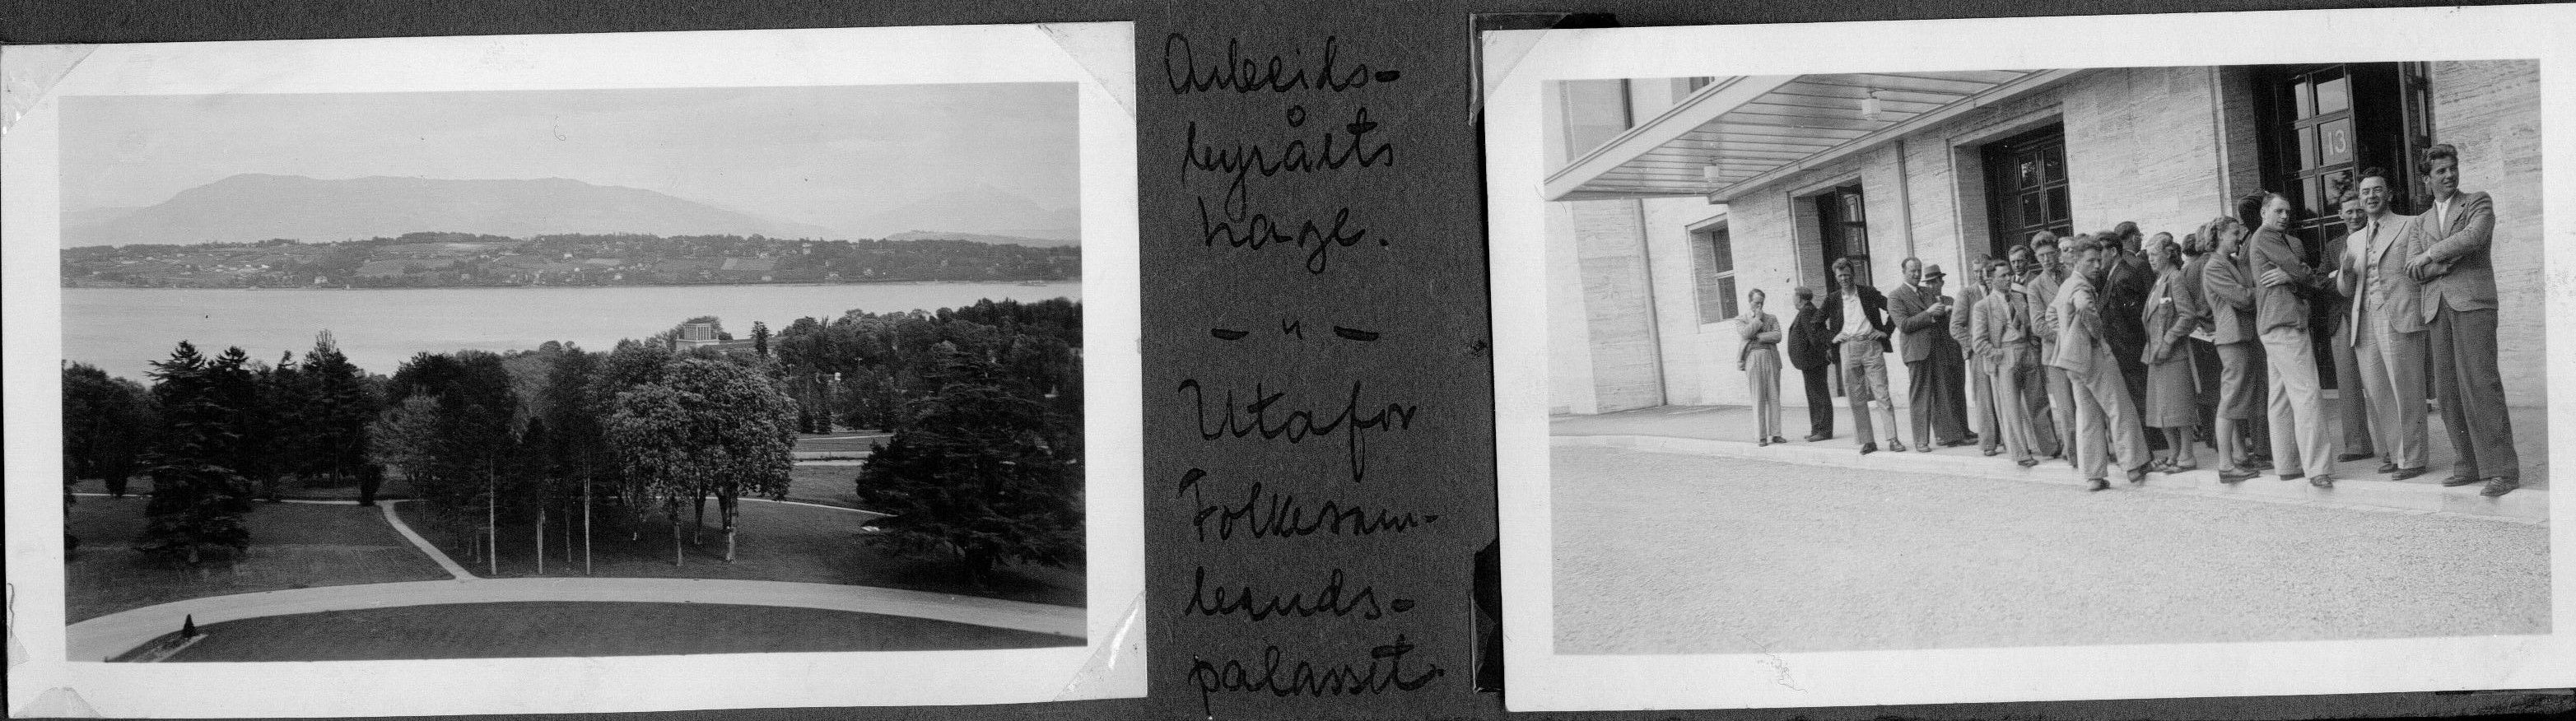 Arbeids-
byråets
hage.
— " —
Utafor
Folkesam-
bands-
palasset
13